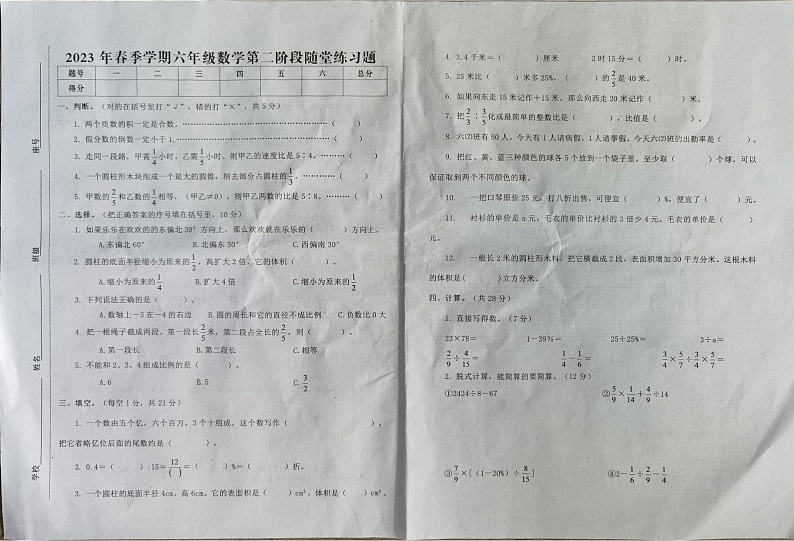 2023 年春季学期六年级数学第二阶段随堂练习题
题号 一 二 三 四 五 六 总分
得分
一、判断。(对的在括号里打“√”，错的打“×”，共 5 分)
1. 两个质数的积一定是合数。……………………………………( )
2. 假分数的倒数一定小于 1.……………………………………( )
3. 走同一段路，甲需1/4小时，乙需1/5小时。则甲乙的速度比是 5∶4。………( )
4. 一个圆柱形木块削成一个最大的圆锥，削去部分占圆柱的1/3。…………( )
5. 甲数的2/5和乙数的1/4相等，(甲乙≠0)，则甲乙两数的比是 5∶8。………( )
二、选择。(把正确答案的序号填在括号里，10 分)
1. 如果乐乐在欢欢的的东偏北 30° 方向上，那么欢欢就在乐乐的( )方向上。
A.东偏北 60° B.北偏东 30° C.西偏南 30°
2. 圆柱的底面半径缩小为原来的1/2，高扩大 2 倍，它的体积( )。
A.缩小为原来的1/4 B.扩大 4 倍 C.缩小为原来的1/2
3. 下列说法正确的是( )。
A.数轴上－3 在－4 的右边 B.圆的周长和它的直径不成比例 C.负数比 0 大
4. 把一根绳子截成两段，第一段长2/5米，第二段占全长的2/5，则( )。
A.第一段长 B.第二段长 C.相等
5. 不能和 2、3、4 组成比例的是( )。
A.6 B.5 C.3/2
三、填空。(每空 1 分，共 21 分)
1. 一个数由五个亿，六个百万，3 个十组成。这个数写作( )，
把它省略亿位后面的尾数约是( )。
2. 0.4＝( )∶15＝12/( )＝( )%＝( )折。
3. 一个圆柱的底面半径 4cm，高 6cm。它的表面积是( )cm²，体积是( )cm³。
4. 3.4 千米＝( )厘米 2 时 15 分＝( )时。
5. 25 米比( )米多 25%，( )的2/5是 40 米。
6. 如果向东走 15 米记作＋15 米，那么向西走 20 米记作( )米。
7. 把2/3∶3/5化成最简单的整数比是( )，比值是( )。
8. 六⑵班有 50 人，今天有 1 人请病假，1 人请事假，今天六⑵班的出勤率是( )。
9. 把红、黄、蓝三种颜色的球各 5 个放到一个袋子里。至少取( )个球，可以
保证取到两个不同颜色的球。
10. 一把口琴原价 25 元，打八折出售，可便宜( )%，便宜了( )元。
11. 衬衫的单价是 a 元，毛衣的单价比衬衫的 3 倍少 4 元，毛衣的单价是( )
元。
12. 一根长 2 米的圆柱形木料，把它横截成 2 段，表面积增加 30 平方分米。这根木料
的体积是( )立方分米。
四、计算。(共 28 分)
1. 直接写得数。(7 分)
23×78＝ 1－39%＝ 25÷25%＝ 3÷a＝
2/9÷4/15＝ 1/4－1/6＝ 3/4×5/7÷3/4×5/7＝
2. 脱式计算，能简算的要简算。(12 分)
①2424÷8－67 ②5/9×1/14＋4/9÷14
③7/9×[(1－20%)÷8/15] ④2－1/6÷2/9－1/4
座号
班级
姓名
学校